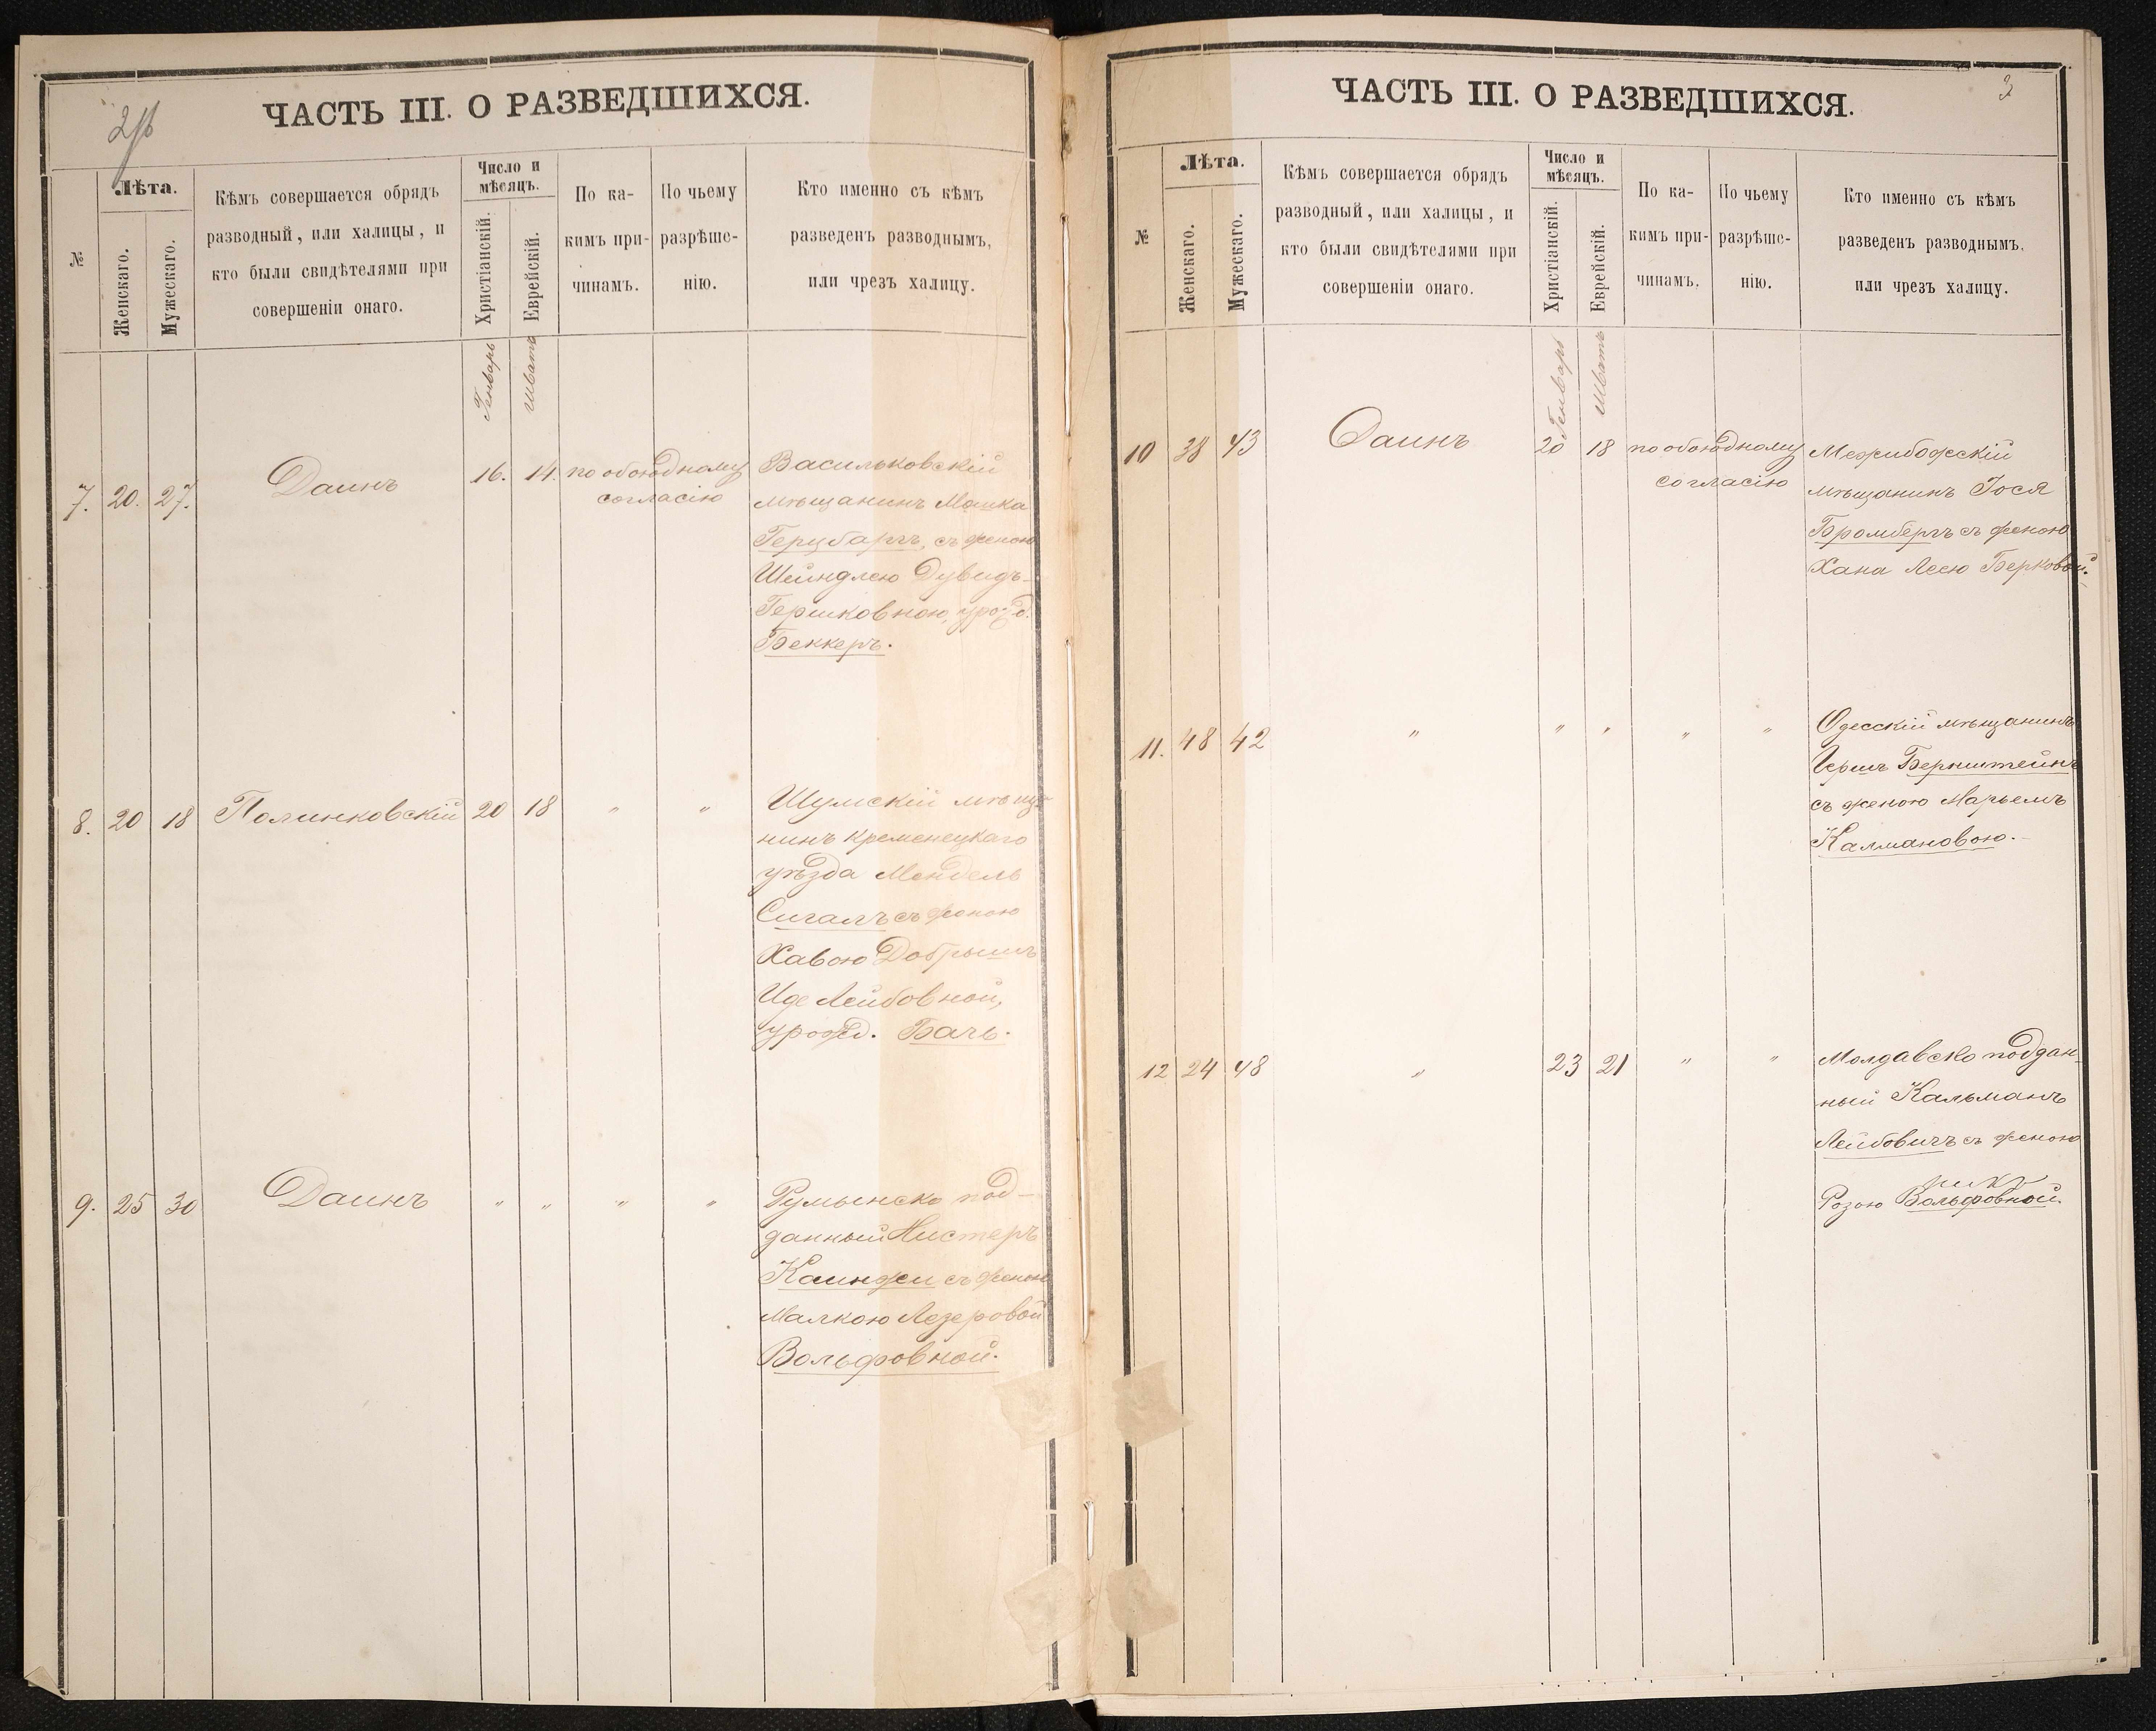 2/р
ЧАСТЬ III. О РАЗВЕДШИХСЯ.
№
Лѣта.
Женскаго.
Мужескаго.
Кѣмъ совершается обрядъ
разводный, или халицы, и
кто были свидѣтелями при
совершеніи онаго.
Число и
мѣсяцъ.
Христіанскій.
Еврейскій.
По ка-
кимъ при-
чинамъ.
По чьему
разрѣше-
нію.
Кто именно съ кѣмъ
разведенъ разводнымъ,
или чрезъ халицу.
Генварь
Шватъ
7. 20. 27. Даинъ 16. 14. по обоюдному
согласію
Васильковскій
мѣщанинъ Машка
Герцбаргъ, съ женою
Шейндлею Дувидъ-
Гершковною, урожд.
Беккеръ.
8. 20 18 Полинковскій 20 18 " "
Шумскій мѣща
нинъ Кременецкаго
уѣзда Мендель
Сигалъ съ женою
Хавою Добрышъ
Иде Лейбовной,
урожд. Бачъ.
9. 25 30 Даинъ " " " "
Румынско под-
данный Нистеръ
Каинжи съ женою
Малкою Лезеровой
Вольфовной.
3
ЧАСТЬ III. О РАЗВЕДШИХСЯ.
№
Лѣта.
Женскаго.
Мужескаго.
Кѣмъ совершается обрядъ
разводный, или халицы, и
кто были свидѣтелями при
совершеніи онаго.
Число и
мѣсяцъ.
Христіанскій.
Еврейскій.
По ка-
кимъ при-
чинамъ.
По чьему
разрѣше-
нію.
Кто именно съ кѣмъ
разведенъ разводнымъ,
или чрезъ халицу.
Генварь
Шватъ
10 38 43 Даинъ 20 18 по обоюдному
согласію
Межибожскій
мѣщанинъ Іося
Бромбергъ съ женою
Хана Леею Берковой.
11. 48 42 " " " " "
Одесскій мѣщанинъ
Герш Бернштейнъ
съ женою Марьемъ
Калмановою.
12 24 48 " 23 21 " "
Молдавско поддан-
ный Кальманъ
Лейбовичъ съ женою
Розою Вольфовной.